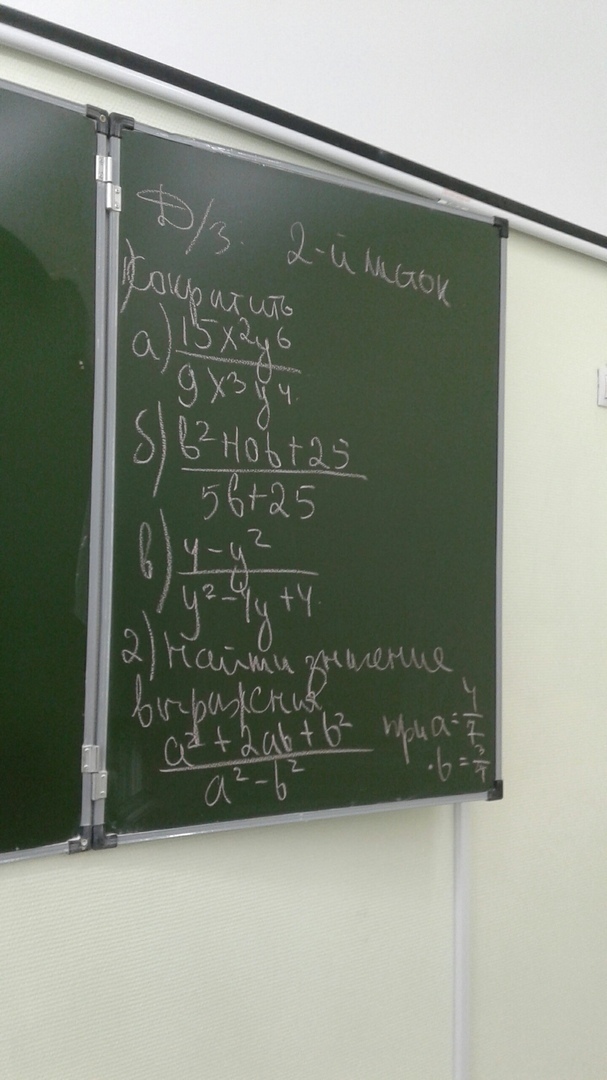 Д/з. 2-й поток
1) Сократить
а) 15x²y⁶
9x³y⁴
б) b²+10b+25
5b+25
в) 4-y²
y²-4y+4
2) Найти значение
выражения
a²+2ab+b² при a=4/7
a²-b² b=3/7